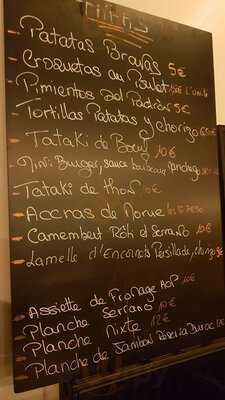 - Patatas Bravas 5€
- Croquetas au Poulet 1,50€ L'unité
- Pimientos del Padrón 5€
- Tortillas Patatas y chorizo 6€
- Tataki de Boeuf 10€
- Mini Burger, sauce barbecue, manchego
- Tataki de thon 10€
- Accras de Morue
- Camembert Rôti et Serrano 10€
- Lamelle d'Encornets Persillade, chorizo 9€
- Assiette de Fromage AOP 10€
- Planche Serrano 10€
- Planche Mixte 12€
- Planche de Jambon